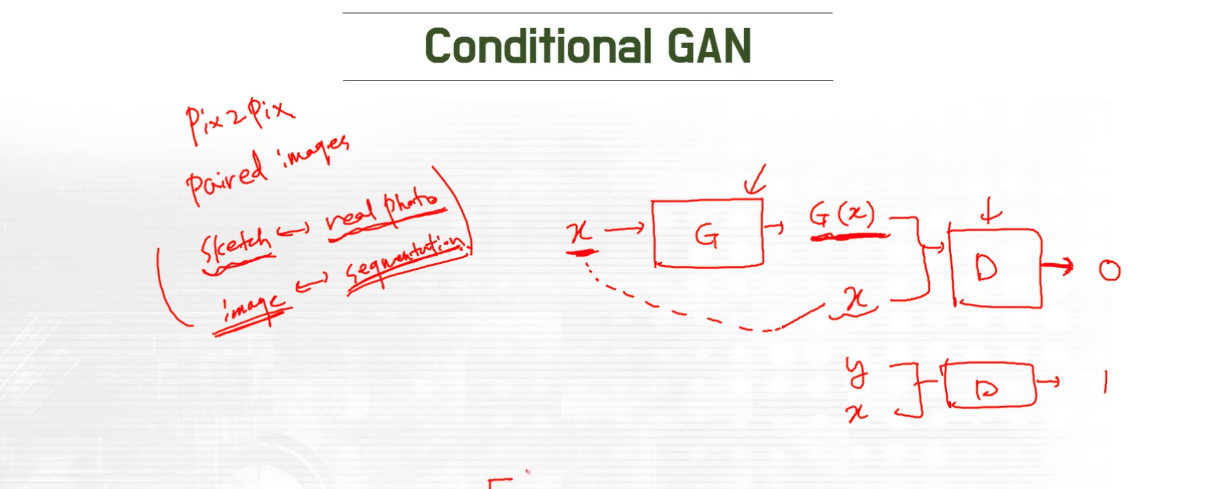 Conditional GAN
Pix2Pix
Paired images
Sketch ↔ real photo
image ↔ segmentation
x → G → G(x)
x
D → 0
y
x
D → 1